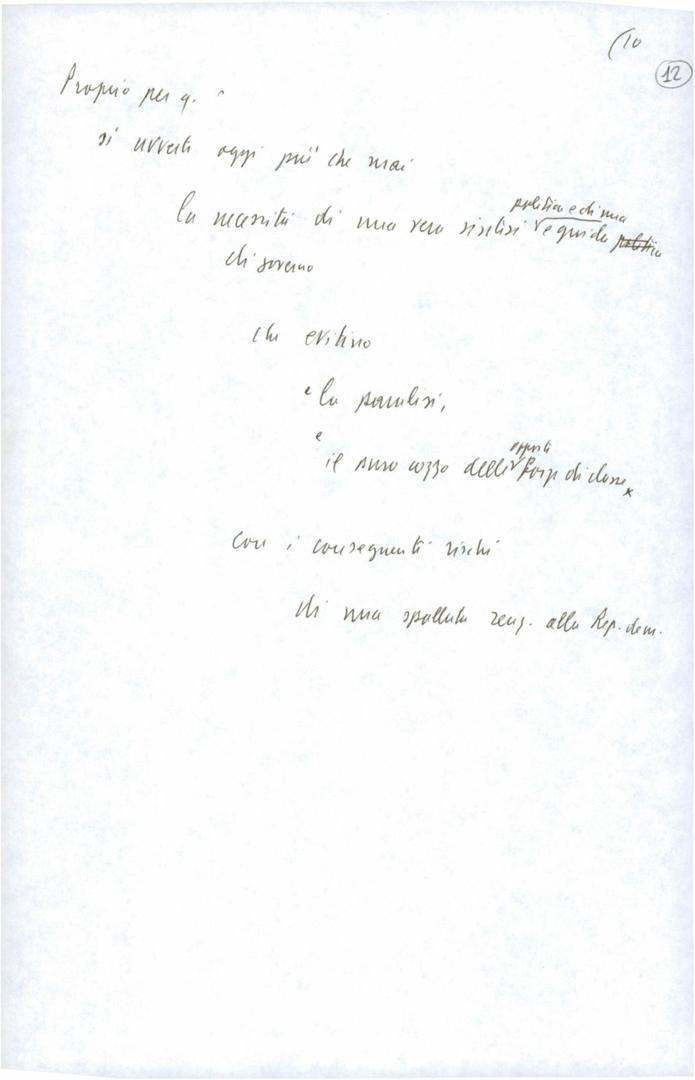 (10
12
Proprio per q.
si avverte oggi più che mai
politica e di una
la necessità di una vera sintesi e guida politica
di governo
che evitino
e la paralisi,
e
opposte
il puro cozzo delle forze di classe x
con i conseguenti rischi
di una spallata reaz. alla Rep. dem.